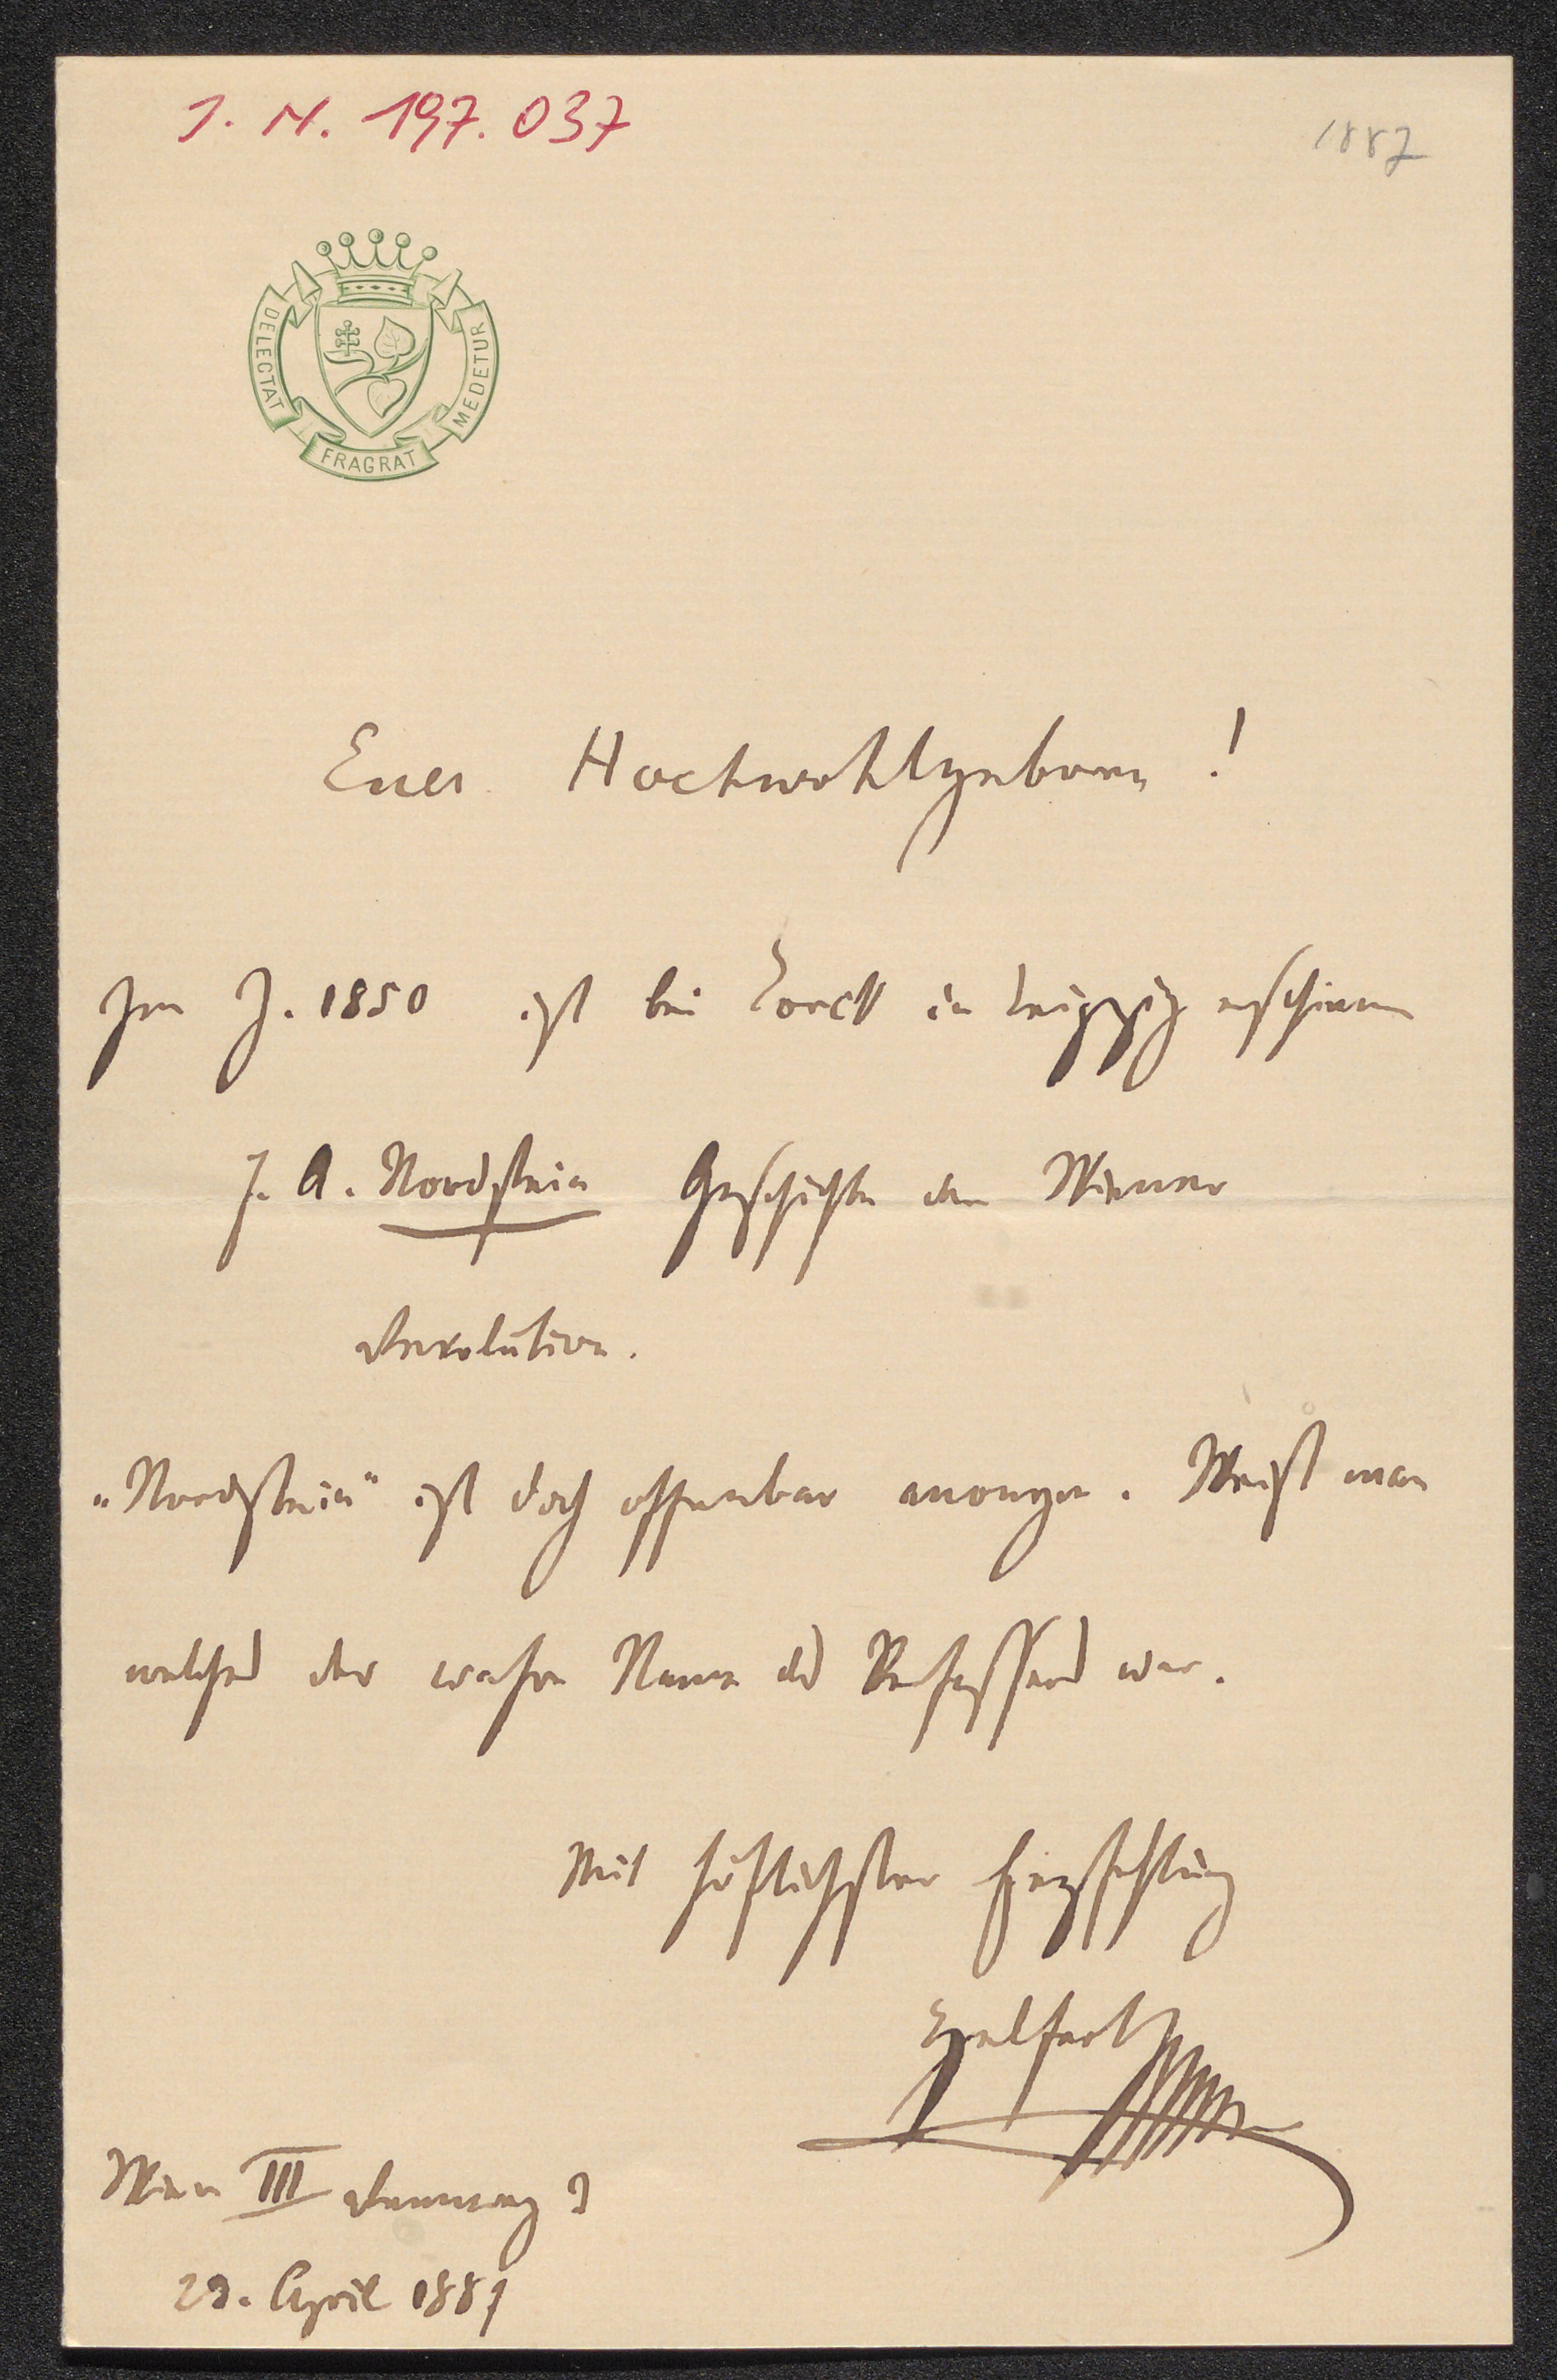 J. N. 197.037
1887
DELECTAT
FRAGRAT
MEDETUR
Euer Hochwohlgeboren!
Im J. 1850 ist bei Lorck in Leipzig erschienen
J. A. Nordstein Geschichte der Wiener
Revolution.
„Nordstein“ ist doch offenbar anonym. Weißt man
welches der wahre Name des Verfassers war.
Mit höflichster Empfehlung
Helfert
Wien III Rennweg 3
29. April 1887